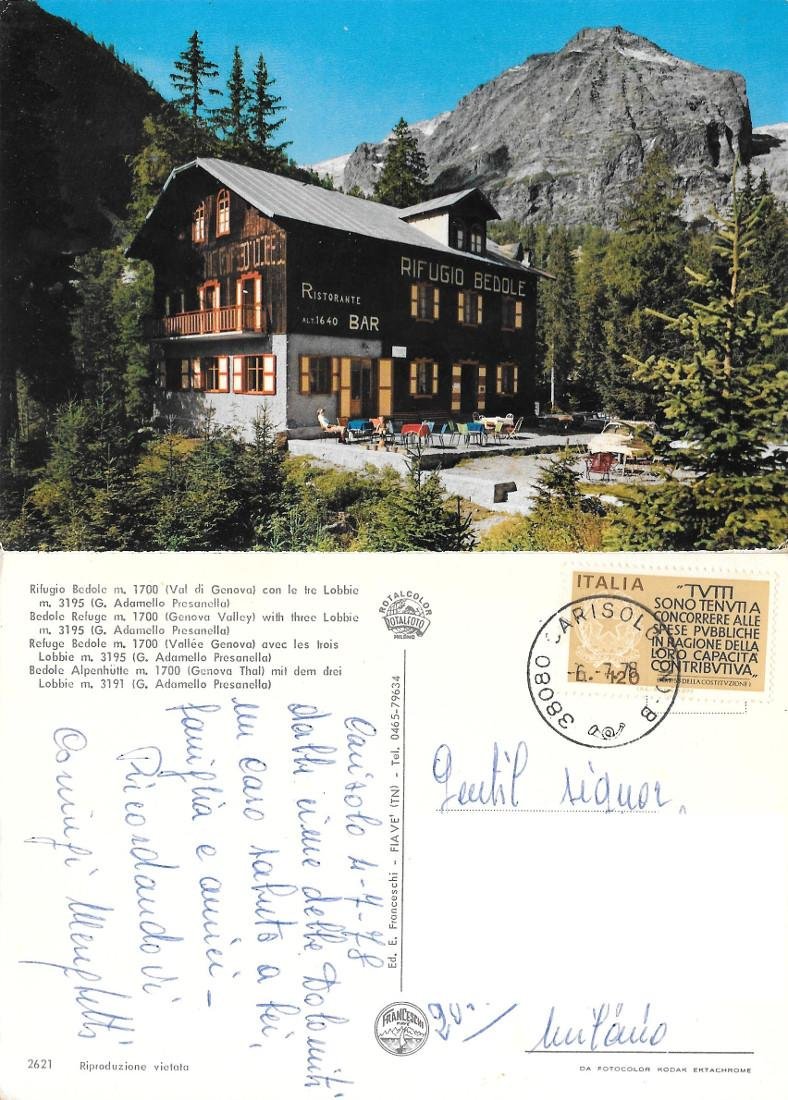 RIFUGIO BEDOLE
RISTORANTE
ALT. 1640 BAR
Rifugio Bedole m. 1700 (Val di Genova) con le tre Lobbie
m. 3195 (G. Adamello Presanella)
Bedole Refuge m. 1700 (Genova Valley) with three Lobbie
m. 3195 (G. Adamello Presanella)
Refuge Bedole m. 1700 (Vallée Genova) avec les trois
Lobbie m. 3195 (G. Adamello Presanella)
Bedole Alpenhütte m. 1700 (Genova Thal) mit dem drei
Lobbie m. 3191 (G. Adamello Presanella)
ROTALCOLOR
ROTALFOTO
MILANO
ITALIA
"TVTTI
SONO TENVTI A
CONCORRERE ALLE
SPESE PVBBLICHE
IN RAGIONE DELLA
LORO CAPACITÀ
CONTRIBVTIVA"
(ART. 53 DELLA COSTITVZIONE)
L. 120
38080 CARISOLO
6.-7.78
Carisolo 4-7-78
dalle cime delle Dolomiti
un caro saluto a lei,
famiglia e amici -
Ricordandovi
Coniugi
Ed. E. Franceschi - FIAVE' (TN) - Tel. 0465-79634
Gentil signor
FRANCESCHI
FIAVE
Milano
2621 Riproduzione vietata
DA FOTOCOLOR KODAK EKTACHROME